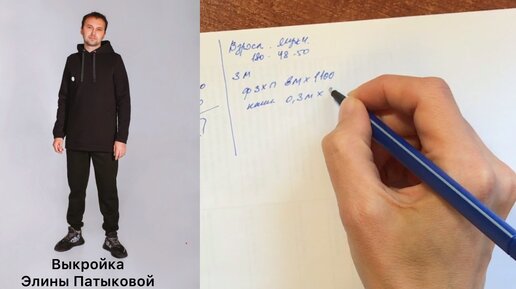 Выкройка
Элины Патыковой
Взросл. мужч.
180 - 48-50
3 м
ф 3х п 3м х 1100
0,3м х